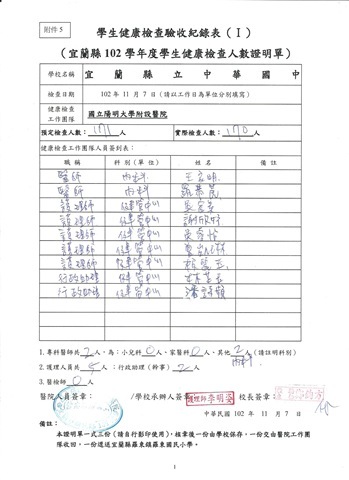 附件 5
學生健康檢查驗收紀錄表（Ⅰ）
（宜蘭縣 102 學年度學生健康檢查人數證明單）
學校名稱 宜蘭縣立中華國中
檢查日期 102 年 11 月 7 日（請以工作日為單位分別填寫）
健康檢查工作團隊 國立陽明大學附設醫院
預定檢查人數：171 人 實際檢查人數：170 人
健康檢查工作團隊人員簽到表：
職稱 科別(單位) 姓名 備註
醫師 內科
醫師 內科
護理師 健管中心
護理師 健管中心
護理師 健管中心
護理師 健管中心
護理師 健管中心
行政助理 健管中心
行政助理 健管中心
1.專科醫師共 2 人，為：小兒科 0 人、家醫科 0 人、其他 2 人(請註明科別)
內科
2.護理人員共 5 人；行政助理（幹事）2 人
3.醫檢師 0 人
醫院人員簽章： /學校承辦人簽章： 護理師 李明姿 校長簽章：
中華民國 102 年 11 月 7 日
備註：
本證明單一式三份（請自行影印使用），核章後一份由學校保存，一份交由醫院工作團隊收回，一份逕送宜蘭縣羅東鎮羅東國民小學。
1